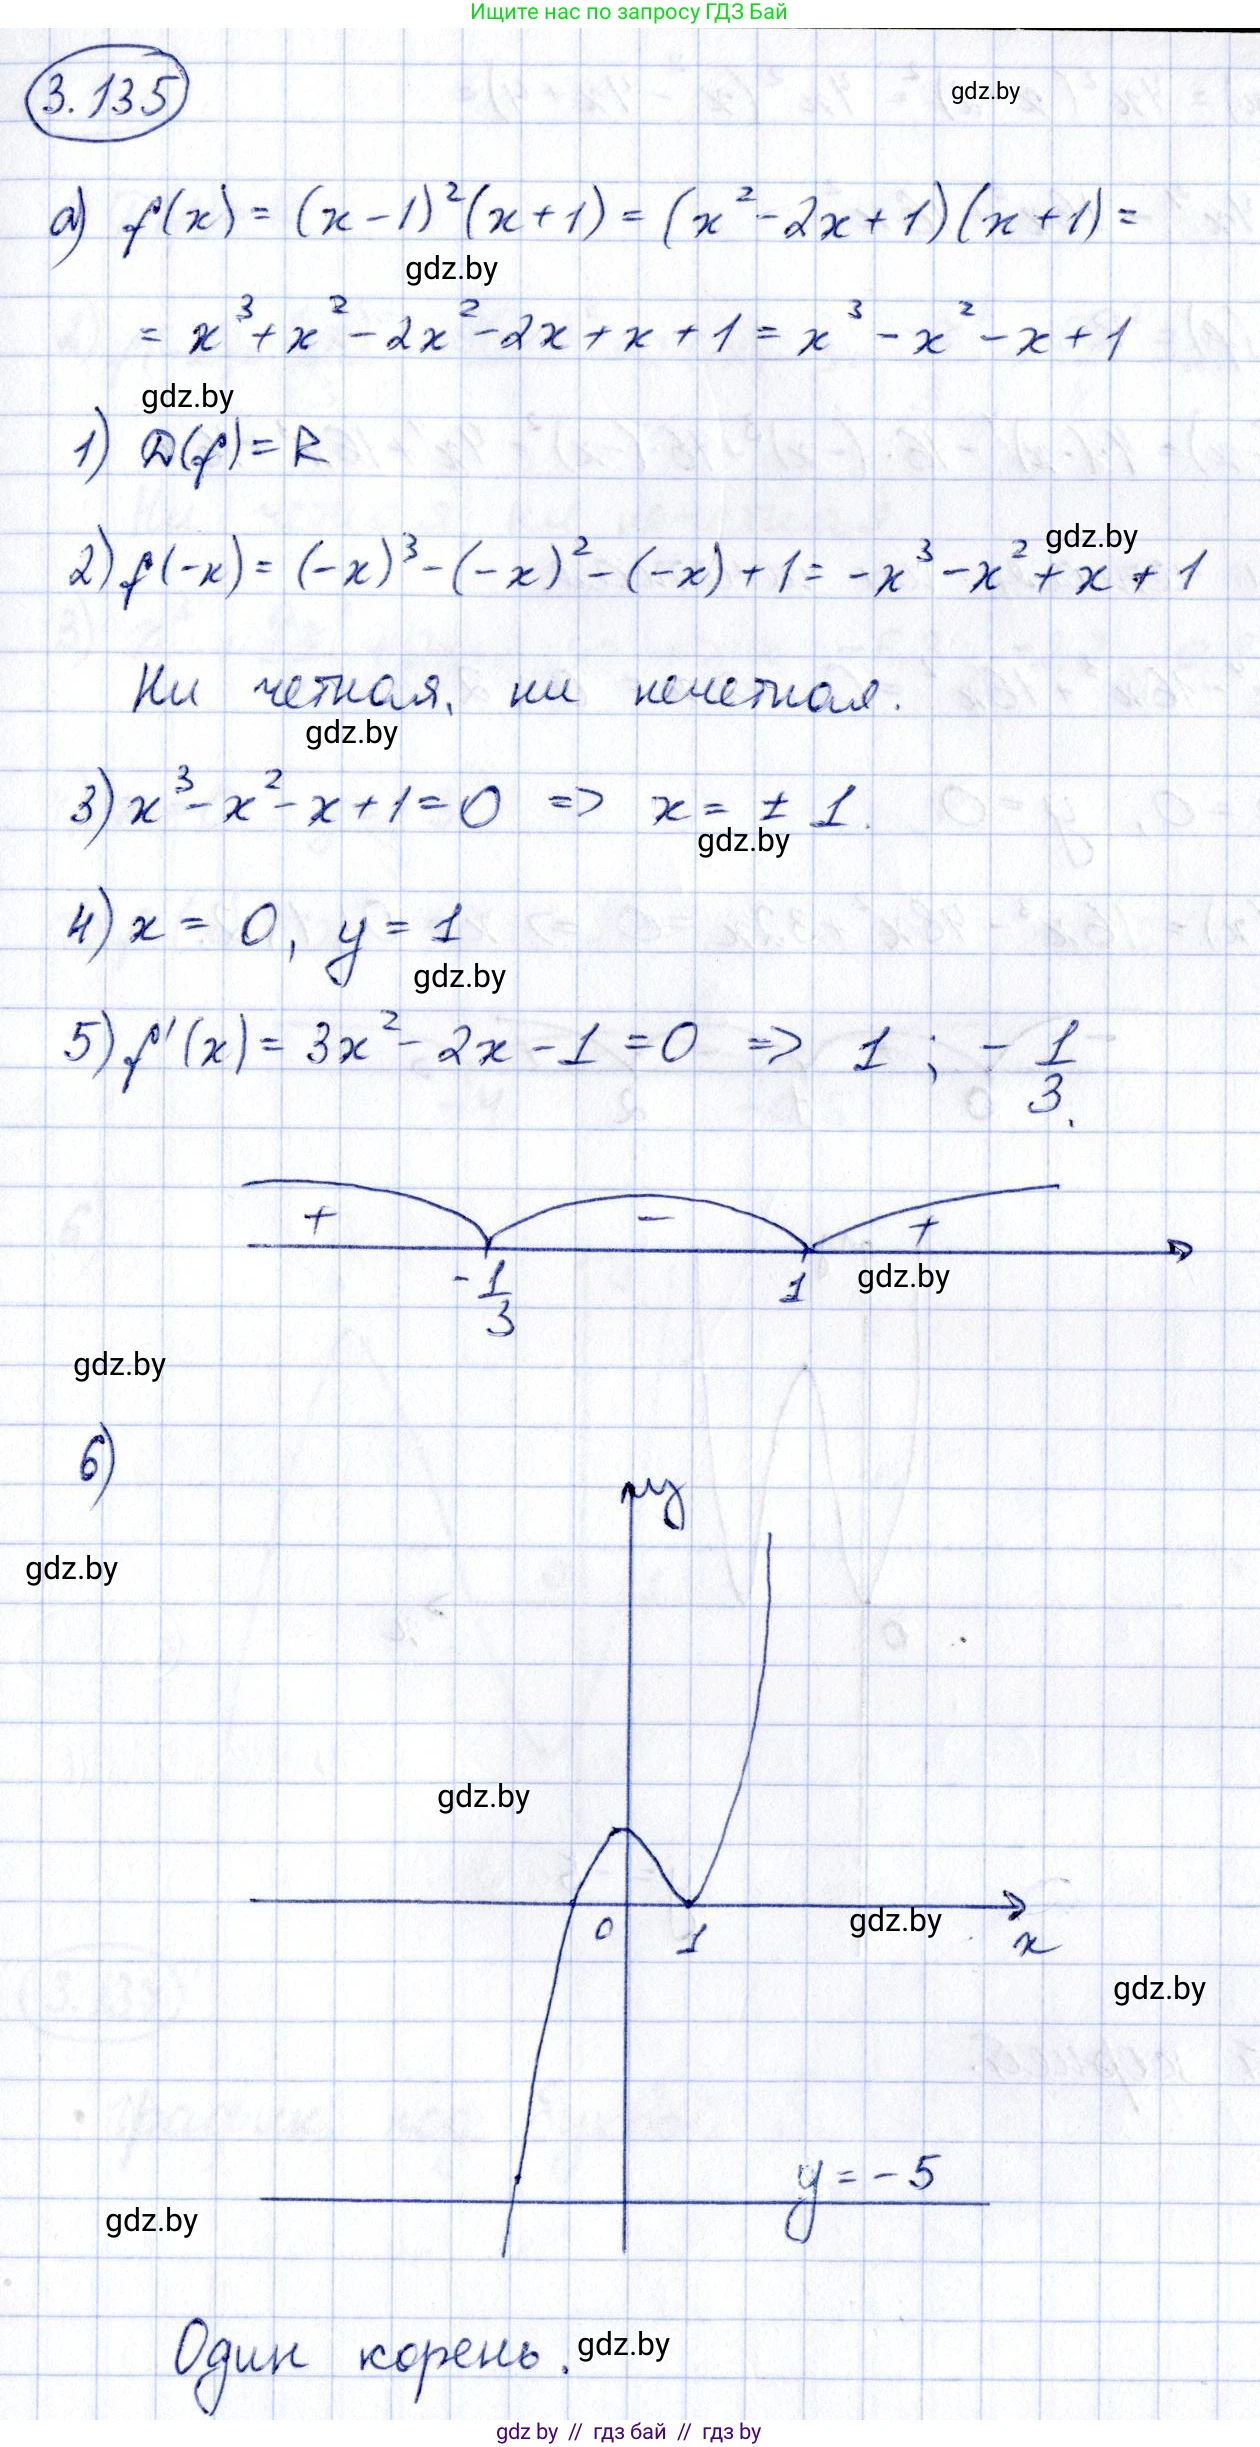 Ищите нас по запросу ГДЗ Бай
3.135
gdz.by
а) f(x) = (x-1)²(x+1) = (x²-2x+1)(x+1) =
gdz.by
= x³+x²-2x²-2x+x+1 = x³-x²-x+1
gdz.by
1) D(f)=R
gdz.by
2) f(-x) = (-x)³-(-x)²-(-x)+1 = -x³-x²+x+1
Ни четная, ни нечетная.
gdz.by
3) x³-x²-x+1=0 => x = ±1.
gdz.by
4) x = 0, y = 1
gdz.by
5) f'(x) = 3x²-2x-1=0 => 1; -1/3.
+ - +
-1/3 1
gdz.by
gdz.by
6)
y
gdz.by
gdz.by
0 1
gdz.by
x
gdz.by
y = -5
gdz.by
Один корень.
gdz.by
gdz by // гдз бай // гдз by